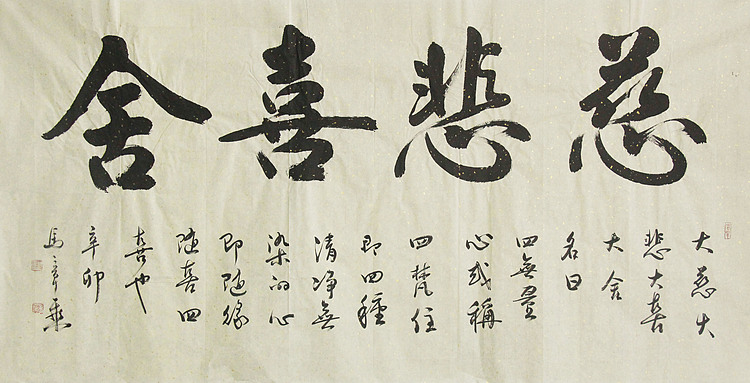 慈悲喜舍
大慈大
悲大喜
大舍
名曰
四無量
心或稱
四梵住
即四種
清净無
染的心
即随緣
随喜四
喜也
辛卯
馬